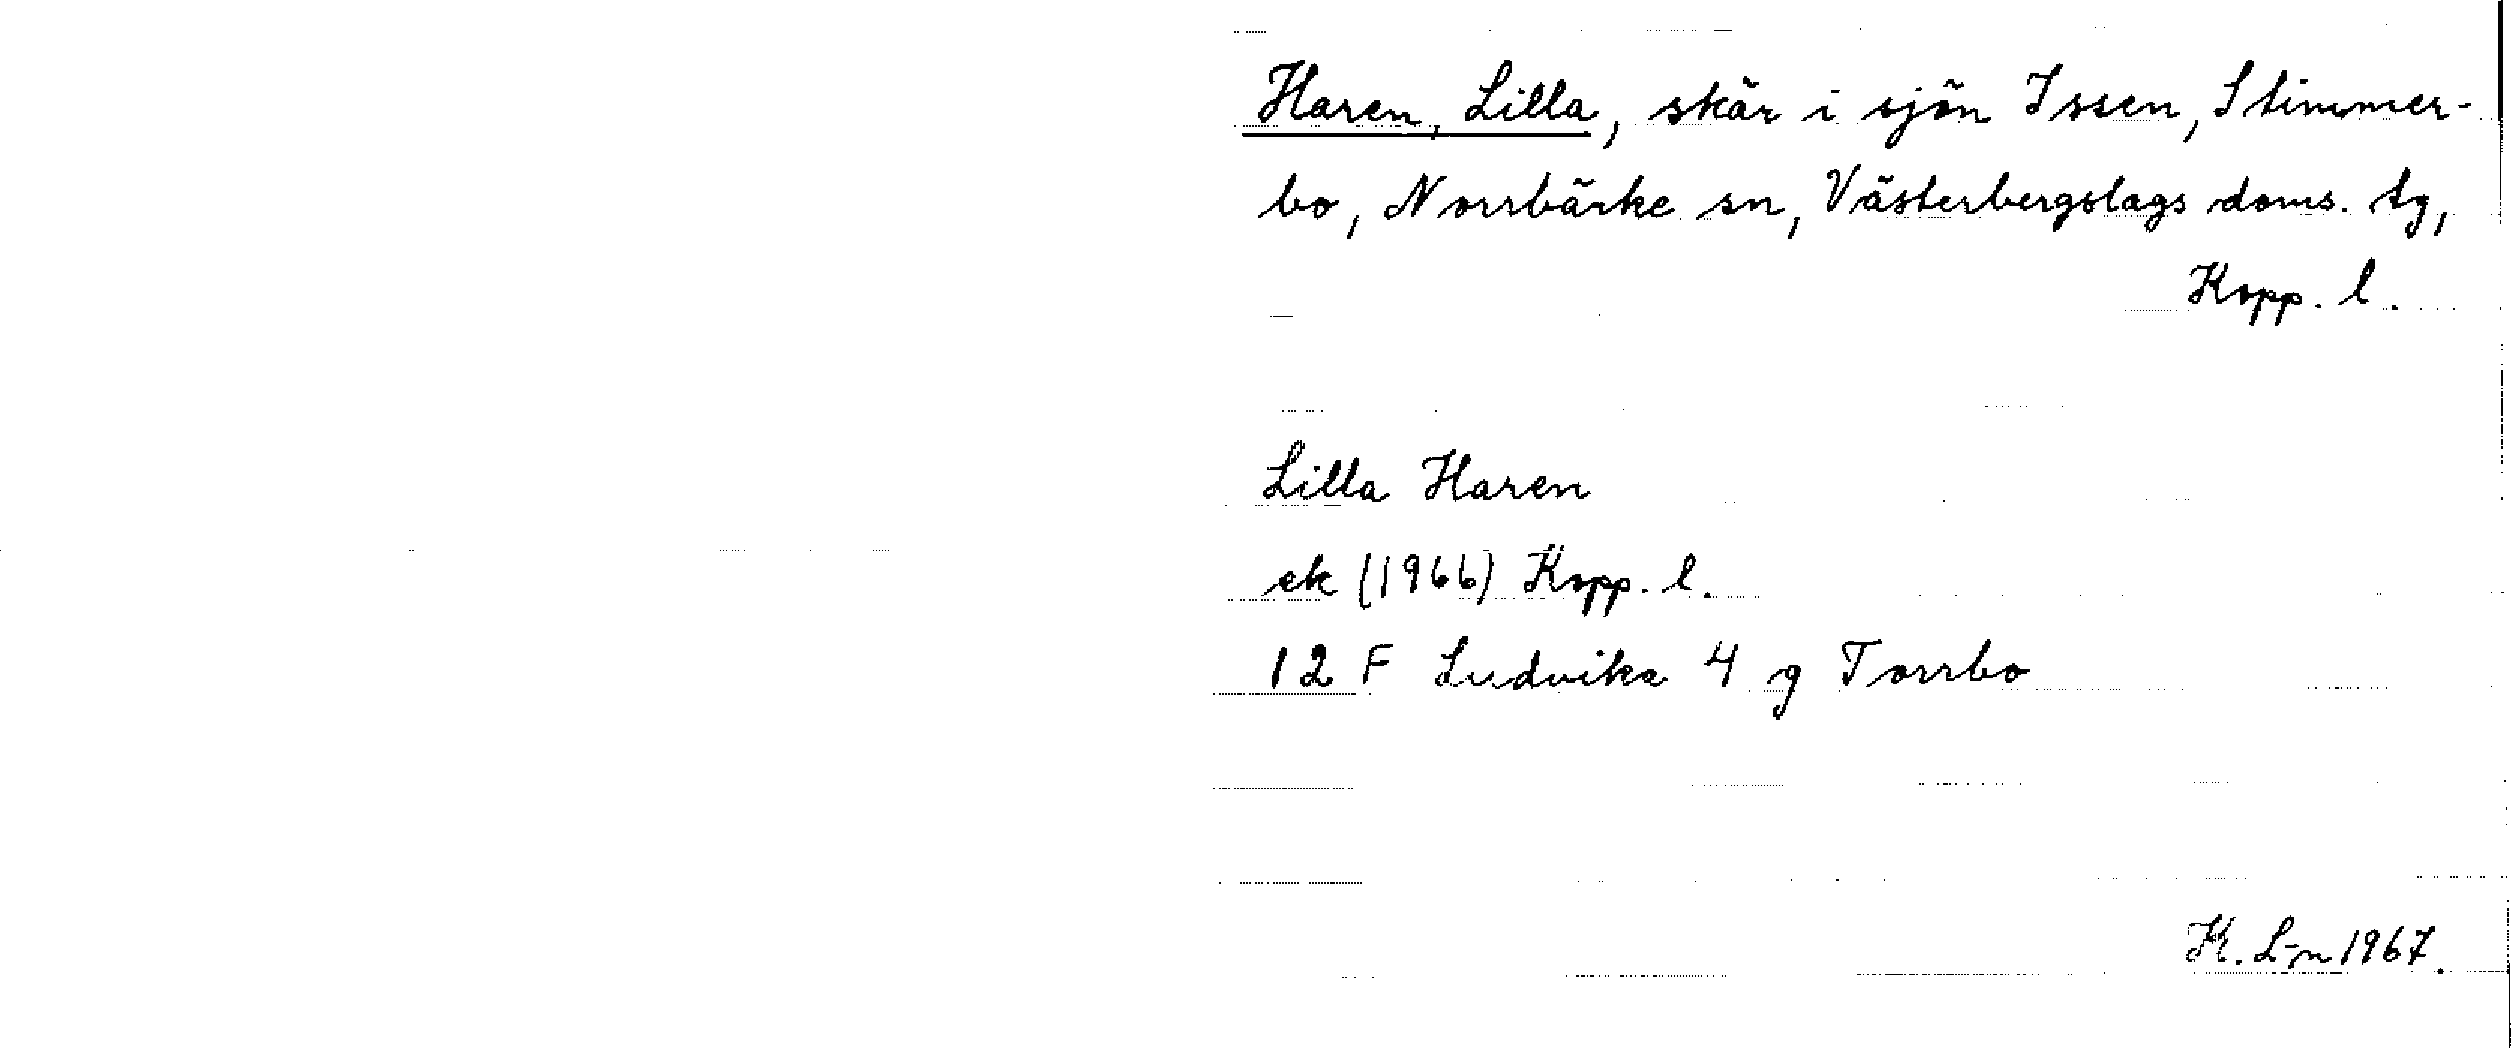 Haren, Lilla, skär i sjön Issen, Stimmer-
bo, Norrbärke sn, Västerbergslags doms. tg,
Kopp. l.
Lilla Haren
ek (1966) Kopp. l.
12 F Ludvika 4 g Torrbo
K. L-n 1967.